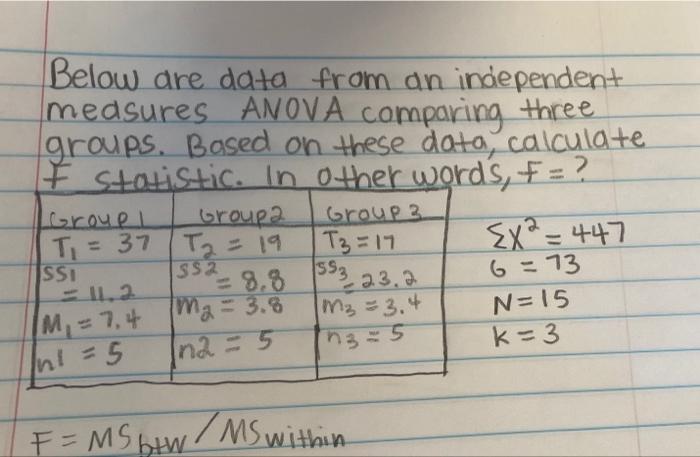 Below are data from an independent
measures ANOVA comparing three
groups. Based on these data, calculate
F statistic. In other words, F = ?
Group 1 Group 2 Group 3
T₁ = 37 T₂ = 19 T₃ = 17
SS1 = 11.2 SS2 = 8.8 SS3 = 23.2
M₁ = 7.4 M₂ = 3.8 M₃ = 3.4
n1 = 5 n2 = 5 n3 = 5
ΣX² = 447
G = 73
N = 15
K = 3
F = MS btw / MS within